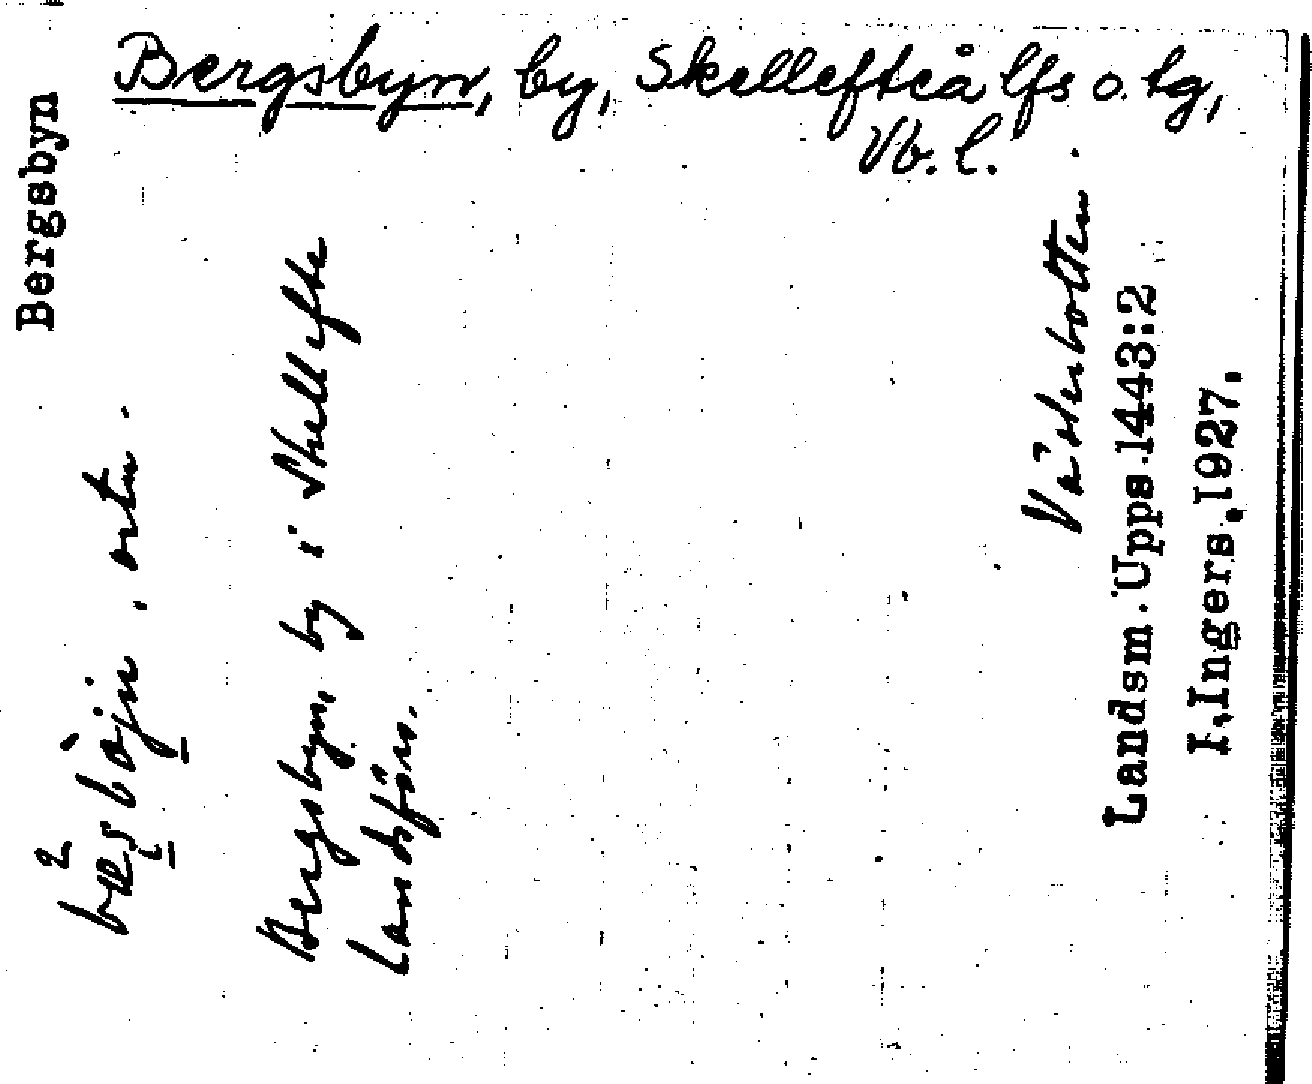 Bergsbyn, by, Skellefteå lfs o. tg,
Vb. l.
Bergsbyn
ortn.
Bergsbyn, by i Skellefte
landsförs.
Västerbotten.
Landsm. Upps. 1443:2
I. Ingers. 1927.